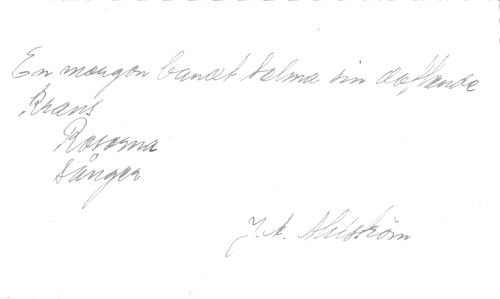 En morgon bandt Selma sin doftande
Krans
Rosorna
Sånger
J. A. Ahlström